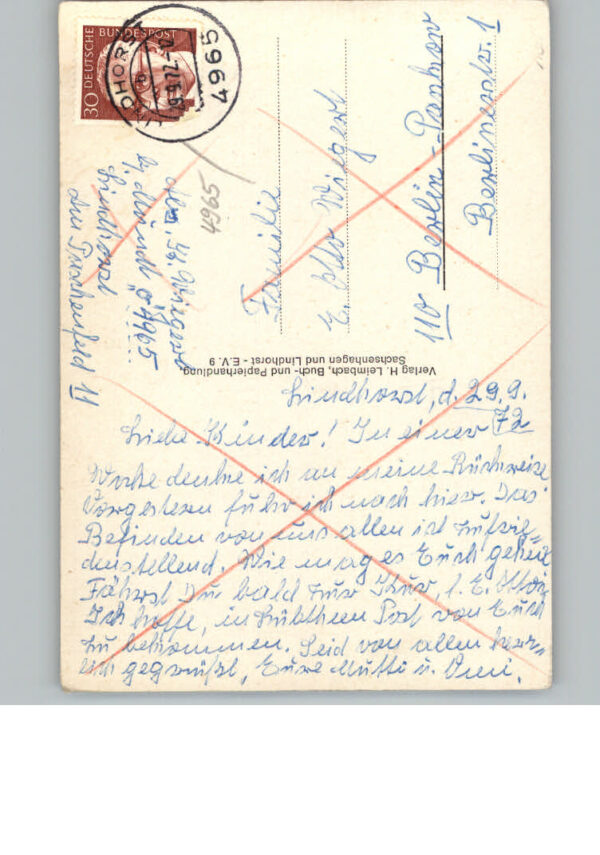 DEUTSCHE BUNDESPOST
30
LINDHORST
4965
4965
Abs. W. Wiegert
b. Mündt
4965
Lindhorst
Im Taschenfeld 11
Familie
E. Otto Wiegert
110 Berlin-Pankow
Berlinerstr. 1
Verlag H. Leimbach, Buch- und Papierhandlung,
Sachsenhagen und Lindhorst - E.V. 9
Lindhorst, d. 29.9.
Liebe Kinder! In einer 72
Woche denke ich an meine Rückreise
Vorgestern fuhr ich nach hier. Das
Befinden von uns allen ist zufrie-
denstellend. Wie mag es Euch gehen
Fährst Du bald zur Kur, l. E. Otto,
Ich hoffe, in Lübtheen Post von Euch
zu bekommen. Seid von allen herz-
lich gegrüßt, Eure Mutti u. Omi.